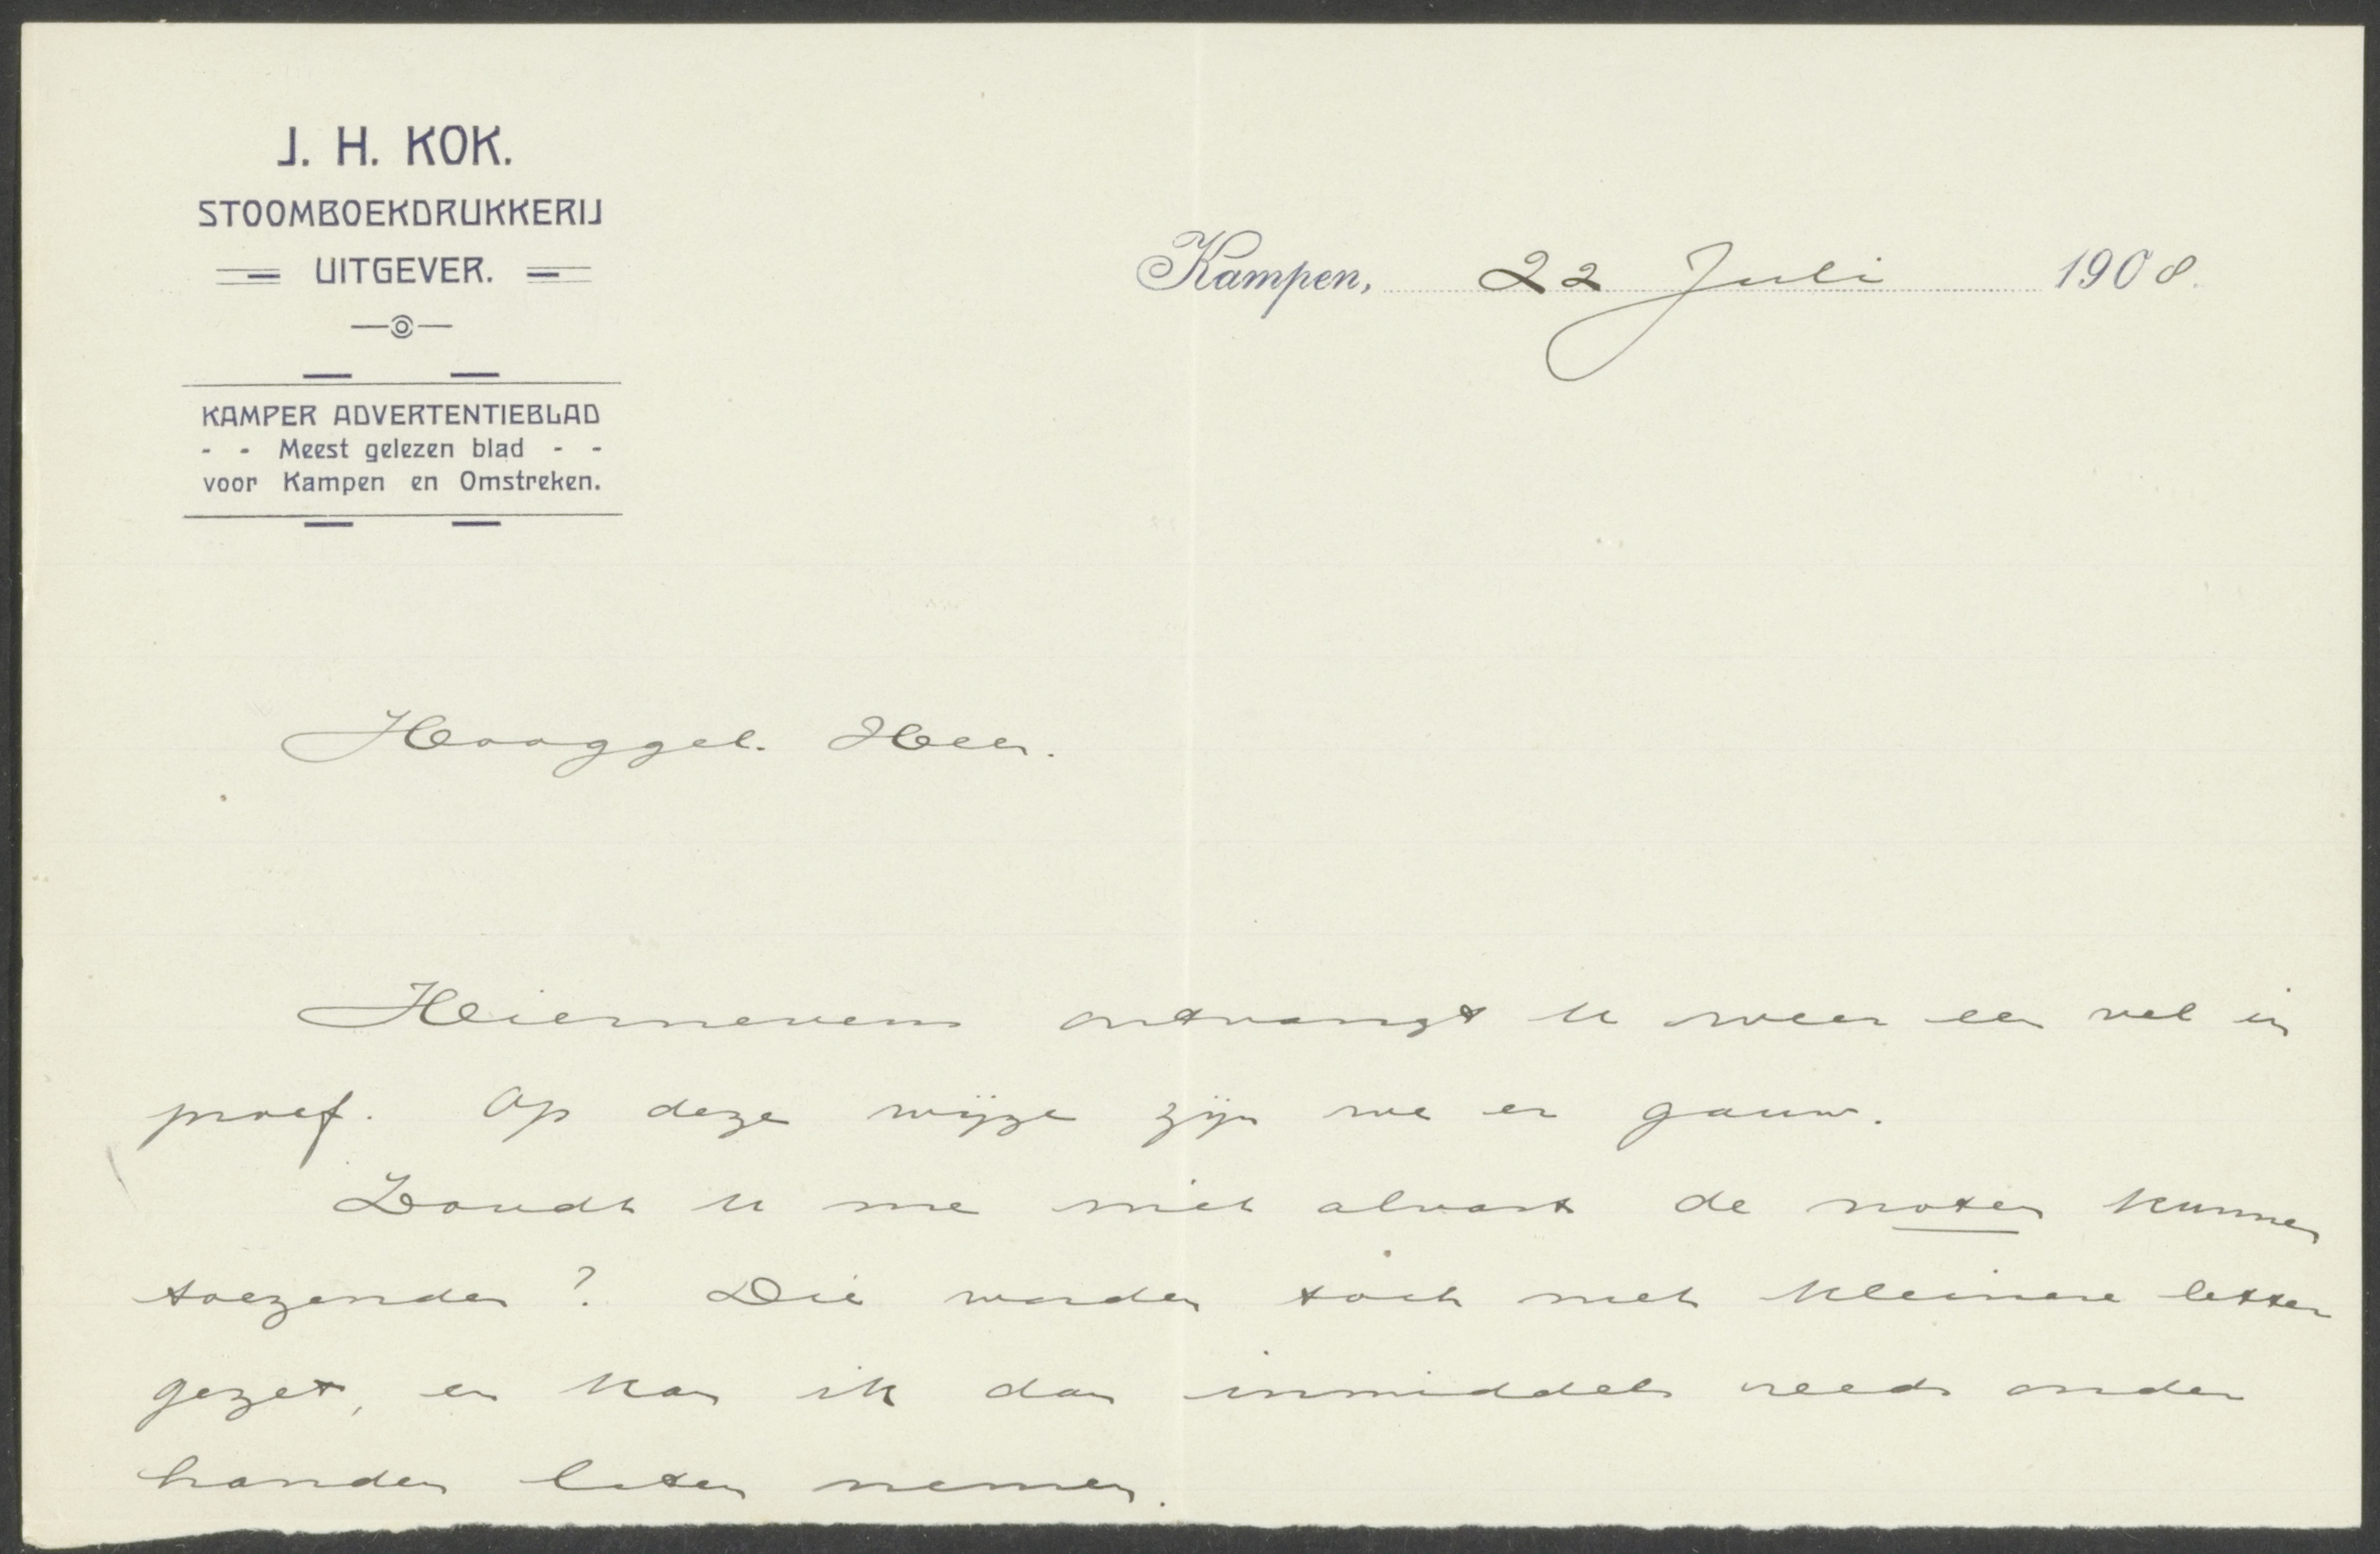 J. H. KOK.
STOOMBOEKDRUKKERIJ
UITGEVER.
KAMPER ADVERTENTIEBLAD
- - Meest gelezen blad - -
voor Kampen en Omstreken.
Kampen, 22 Juli 1908.
Hooggel. Heer.
Hiernevens ontvangt U weer een vel in
proef. Op deze wijze zijn we er gauw.
Zoudt U me niet alvast de noten kunnen
toezenden? Die worden toch met kleinere letter
gezet, en kan ik dan inmiddels reeds onder
handen laten nemen.